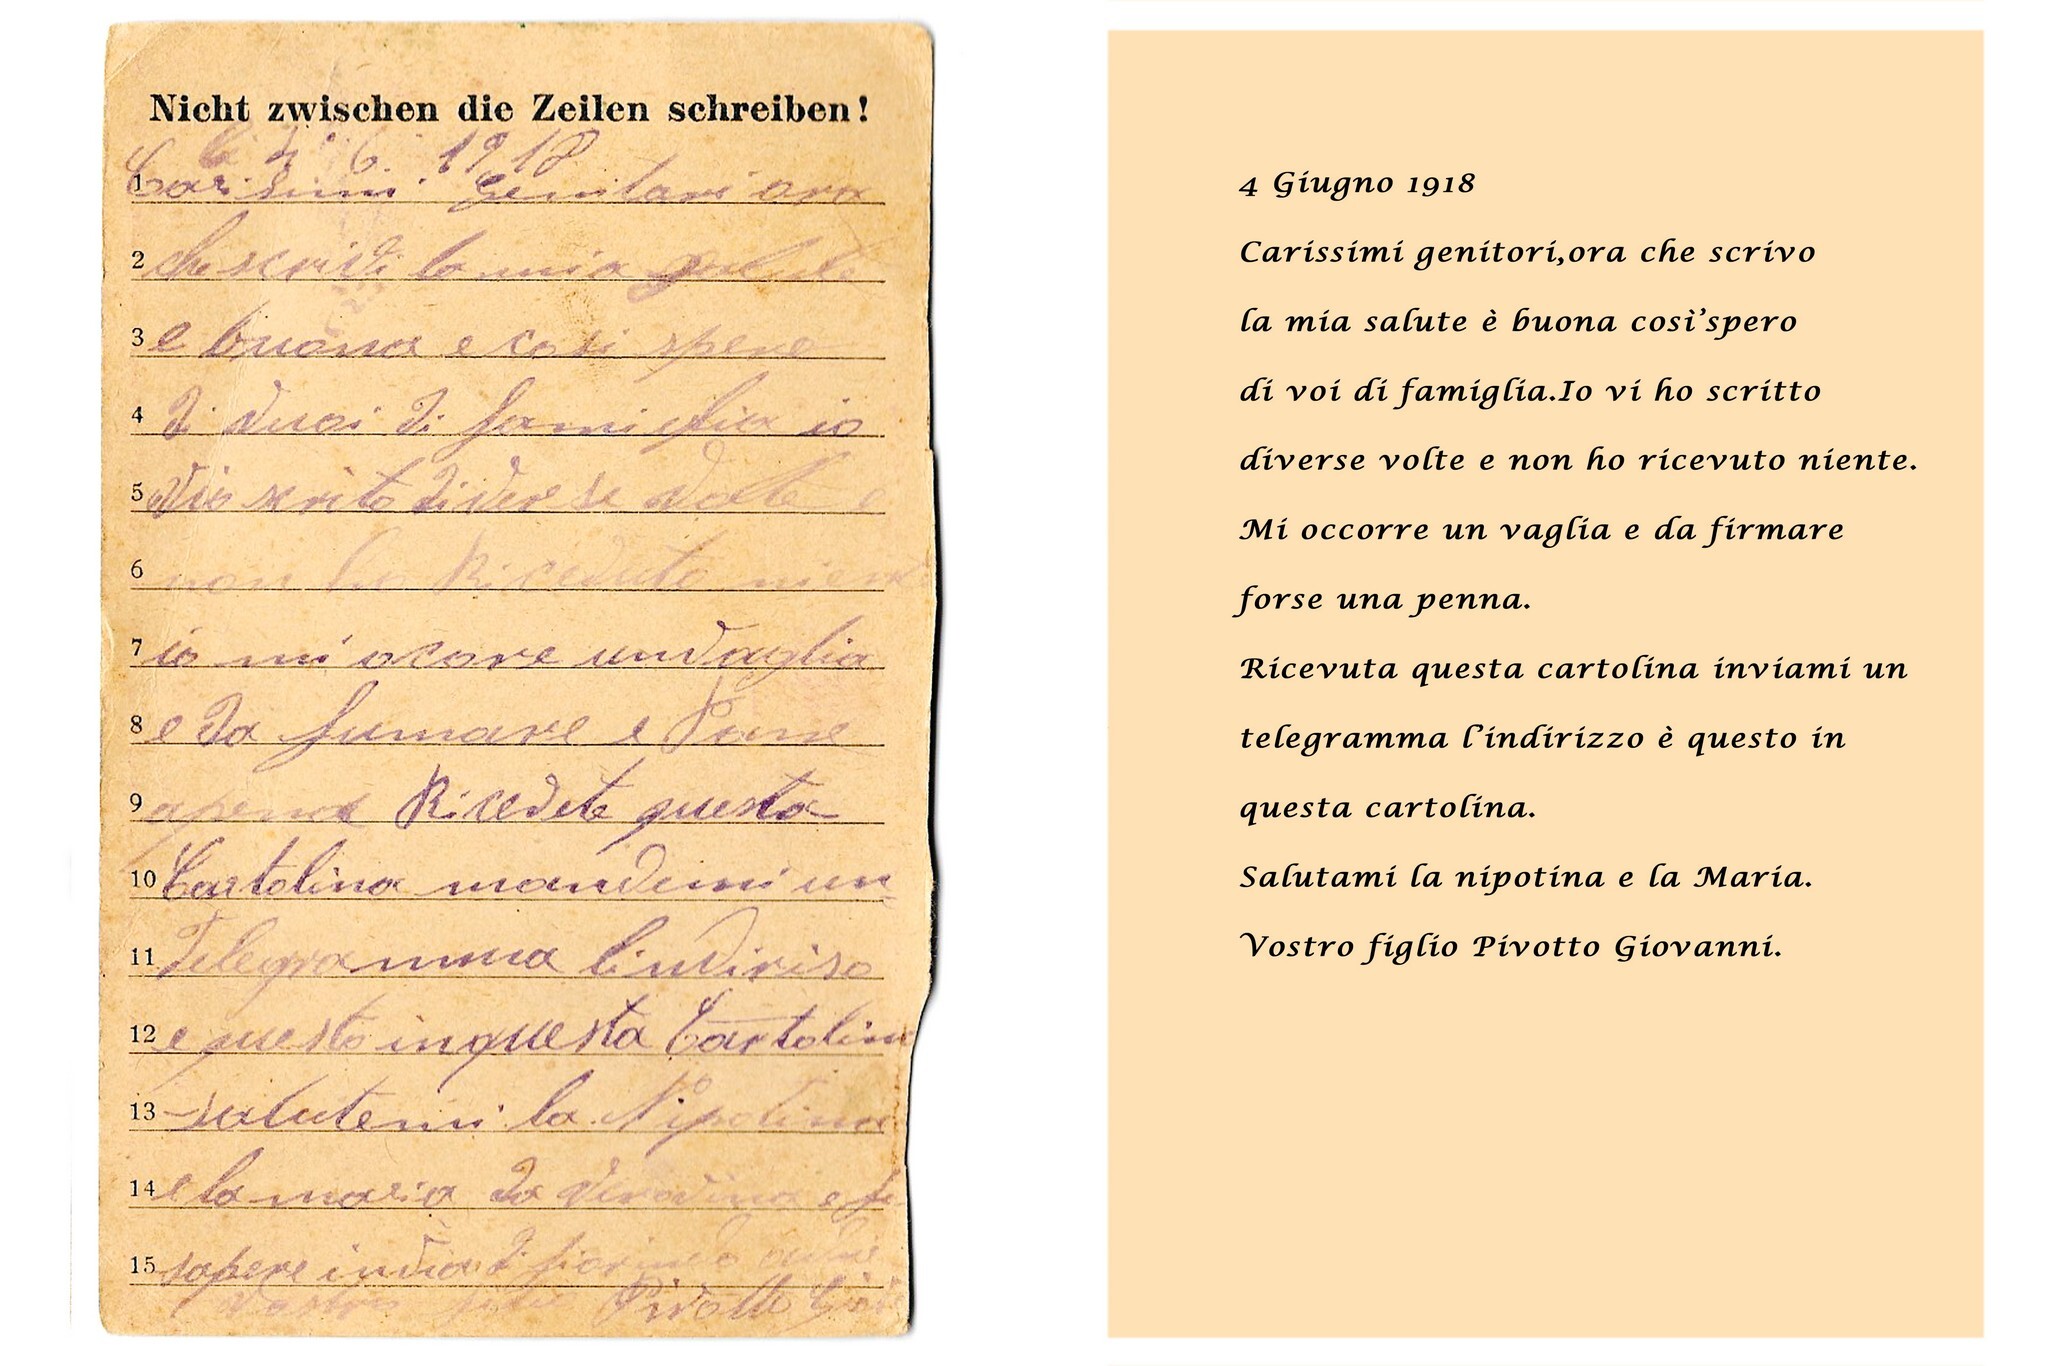 Nicht zwischen die Zeilen schreiben!
li 4. 6. 1918
1 Carisimi Genitori ora
2 che scrivi la mia salute
3 e buona e cosi spero
4 di vuoi di famiglia io
5 vio scrito diverse volte e
6 non ho Riceduto nien
7 io mi ocore un vaglia
8 e da fumare e Pane
9 apena Ricevete questa
10 Cartolina mandemi un
11 Telegramma lindiriso
12 e questo in questa Cartolin
13 salutemi la Nipotina
14 e la maria da e
15 sapere di
Vostro Pivotto
4 Giugno 1918
Carissimi genitori,ora che scrivo
la mia salute è buona così’spero
di voi di famiglia.Io vi ho scritto
diverse volte e non ho ricevuto niente.
Mi occorre un vaglia e da firmare
forse una penna.
Ricevuta questa cartolina inviami un
telegramma l’indirizzo è questo in
questa cartolina.
Salutami la nipotina e la Maria.
Vostro figlio Pivotto Giovanni.